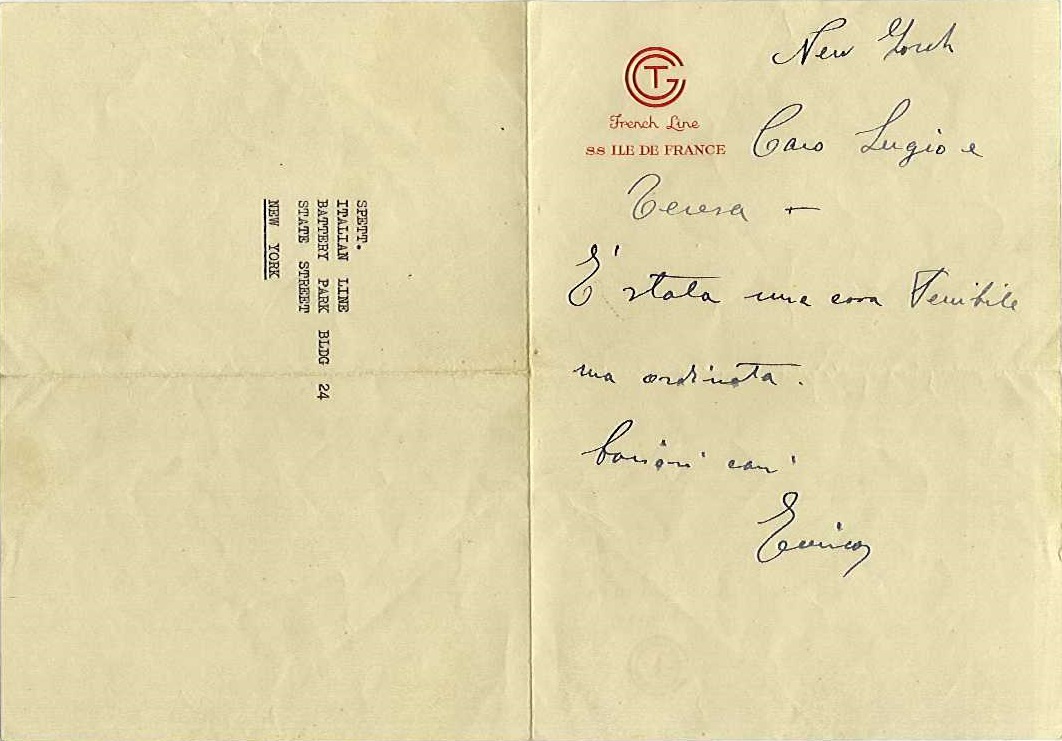 SPETT.
ITALIAN LINE
BATTERY PARK BLDG 24
STATE STREET
NEW YORK
CGT
French Line
S.S ILE DE FRANCE
New York
Caro Sergio e
Teresa +
E' stata una cosa Terribile
ma ordinata.
Bacioni cari
Enrico